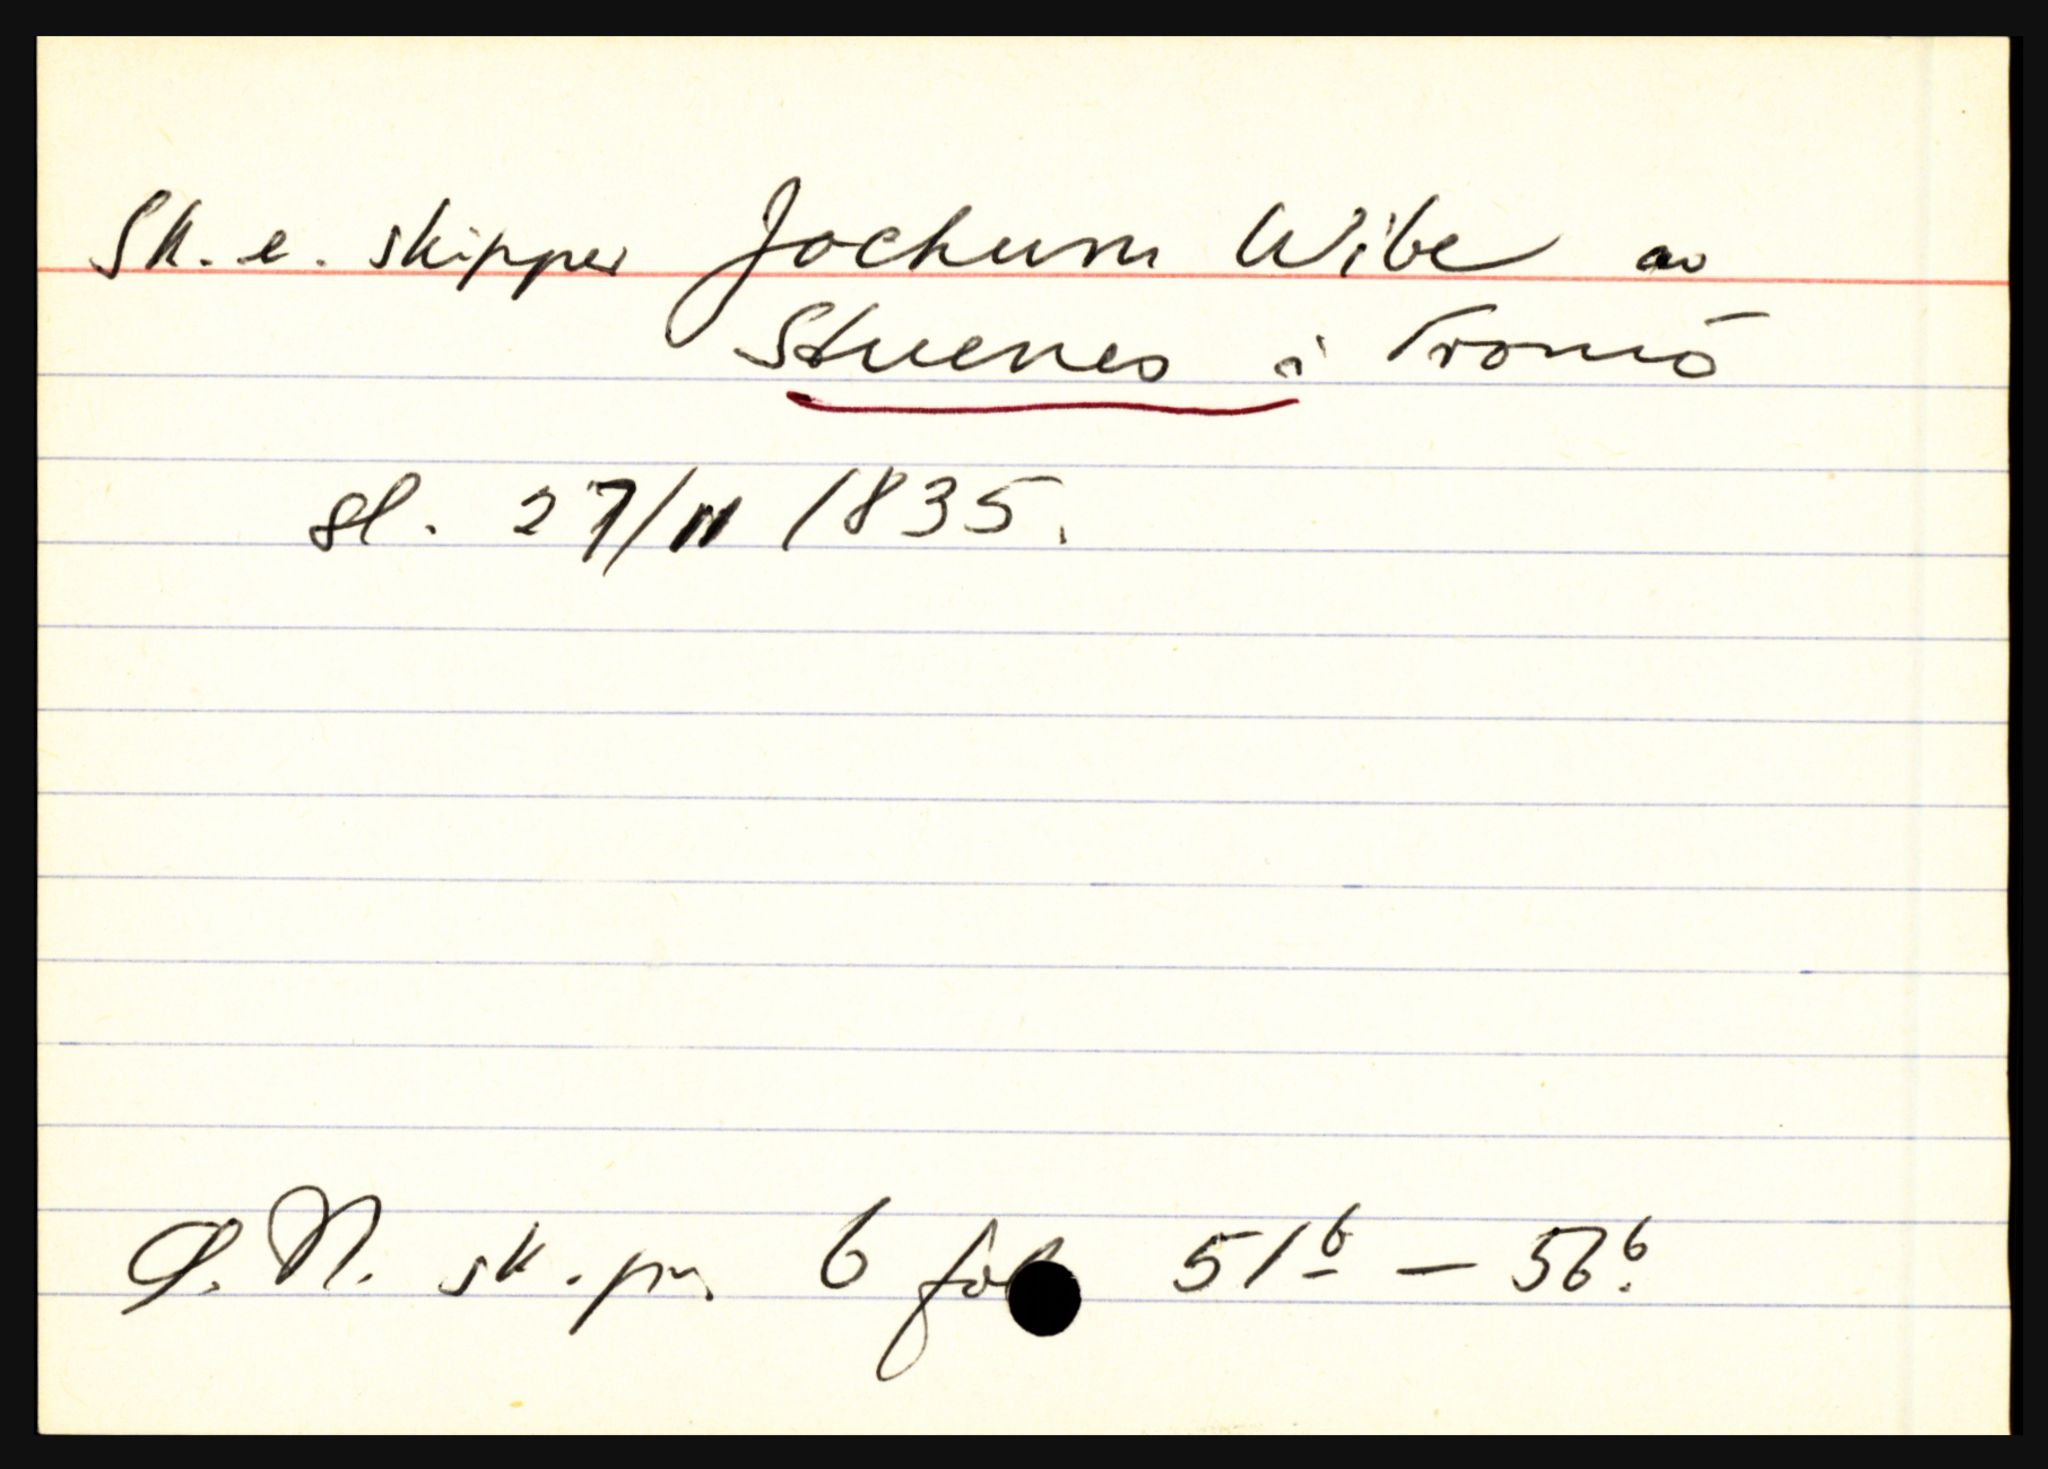 Sk. e. skipper Jochum Wibe av
Stuenes i Tromö
sl. 27/11 1835.
Ø. N. sk. pr. 6 fol 51b – 56b.